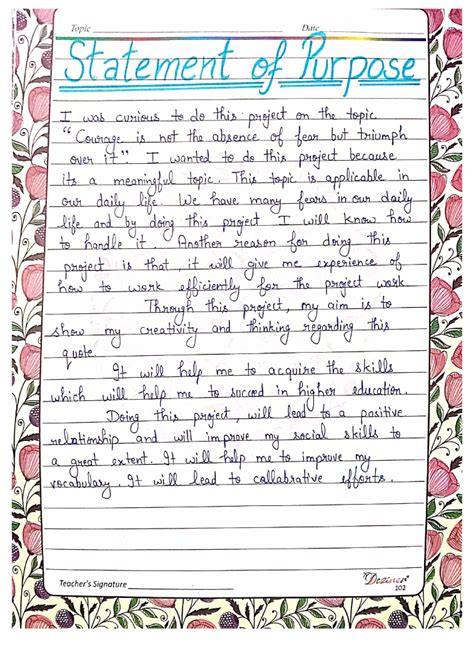 Topic Date
Statement of Purpose
I was curious to do this project on the topic
"Courage is not the absence of fear but triumph
over it". I wanted to do this project because
its a meaningful topic. This topic is applicable in
our daily life. We have many fears in our daily
life and by doing this project I will know how
to handle it. Another reason for doing this
project is that, it will give me experience of
how to work efficiently for the project work.
Through this project, my aim is to
show my creativity and thinking regarding this
quote.
It will help me to acquire the skills
which will help me to succed in higher education.
Doing this project, will lead to a positive
relationship and will improve my social skills to
a great extent. It will help me to improve my
vocabulary. It will lead to collabrative efforts.
Teacher's Signature
Deziner
102